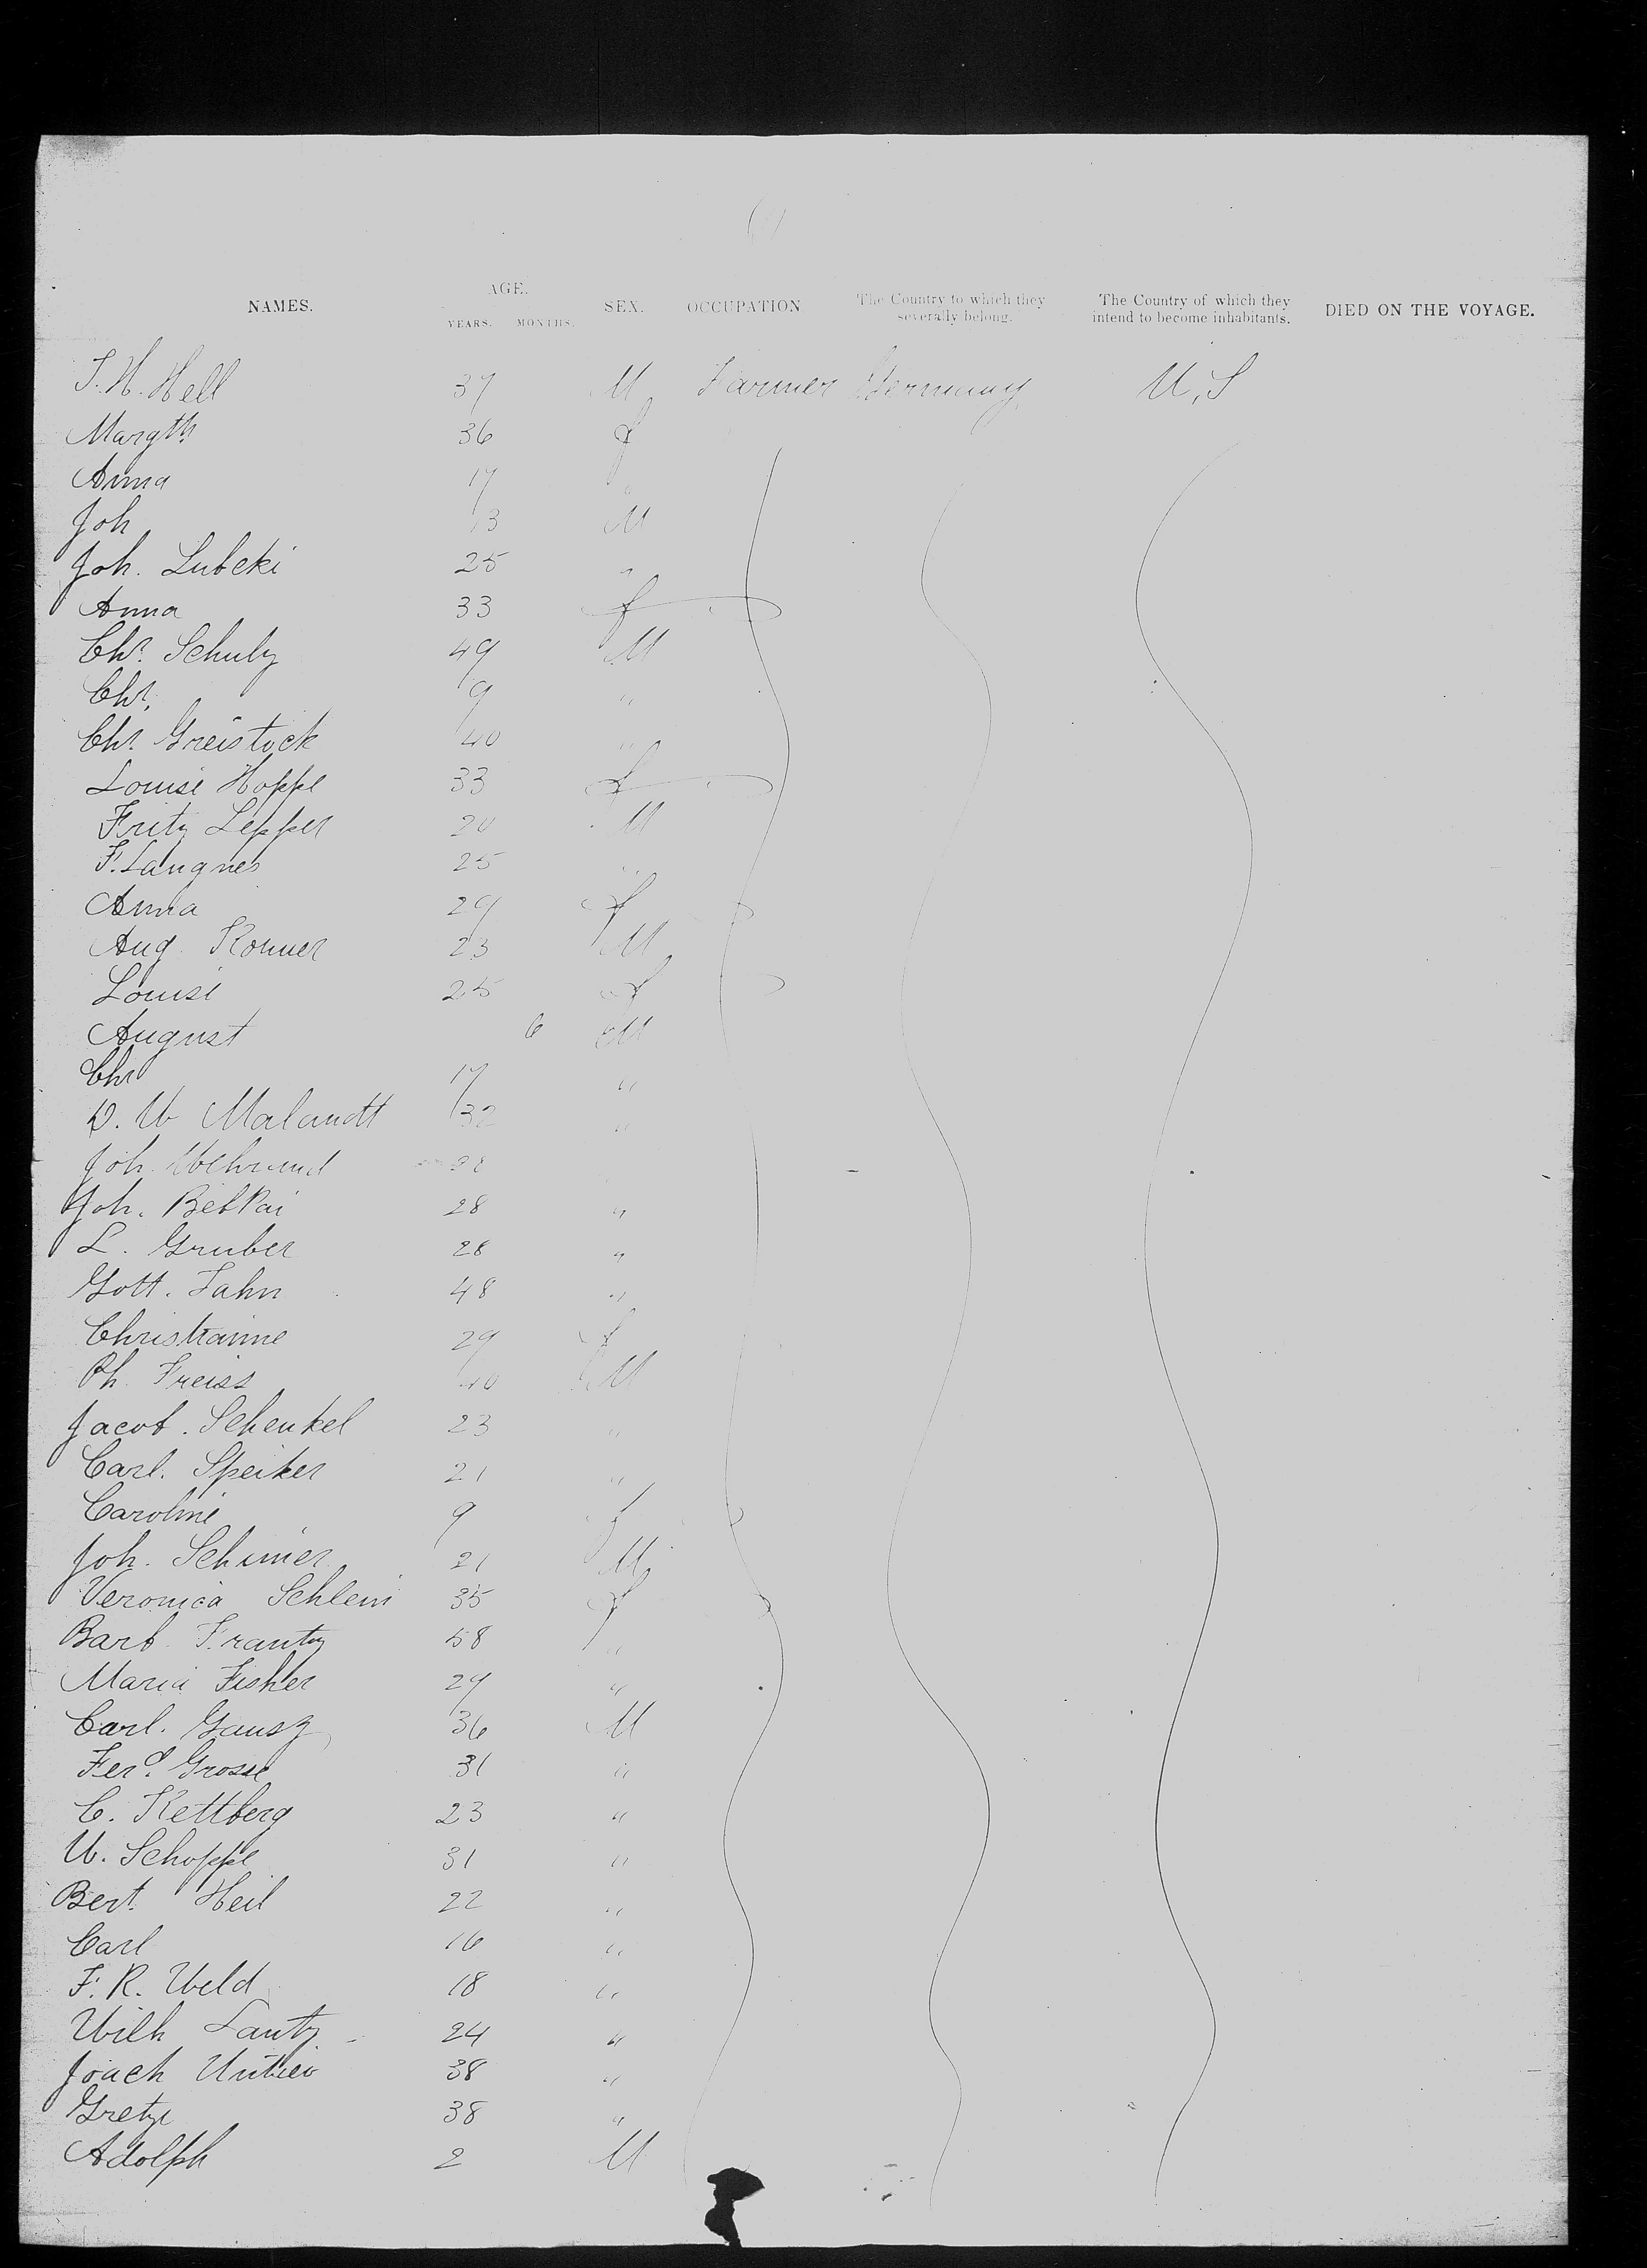 NAMES. AGE. YEARS. MONTHS. SEX. OCCUPATION The Country to which they severally belong. The Country of which they intend to become inhabitants. DIED ON THE VOYAGE.
J. H. Hell 37 M Farmer Germany U.S
Margth 36 f
Anna 17 "
Joh 13 M
Joh. Lubcki 25 "
Anna 33 f
Chr. Schulz 49 M
Chr. 9 "
Chr Greistock 40 "
Louise Hoppe 33 f
Fritz Lepper 20 M
F. Langnes 25 "
Anna 29 f
Aug Konner 23 M
Louise 25 f
August 6 M
Chr 17 "
D. W Malandt 32 "
Joh.
Joh. 28 "
L. Gruber 28 "
Gott. Jahn 48 "
Christianne 29 f
Ph. Freiss 40 M
Jacob. Schenkel 23 "
Carl. Speiker 21 "
Caroline 9 f
Joh. Schimer 21 M
Veronica Schlein 35 f
Barb. Frantz 58 "
Maria Fisher 29 "
Carl. Gansz 36 M
Ferd. Grosse 31 "
C. Kettberg 23 "
W. Schoppe 31 "
Bert. Heil 22 "
Carl 16 "
F. R. Weld 18 "
Wilh Lantz 24 "
Joach 38 "
Gretze 38 "
Adolph 2 M